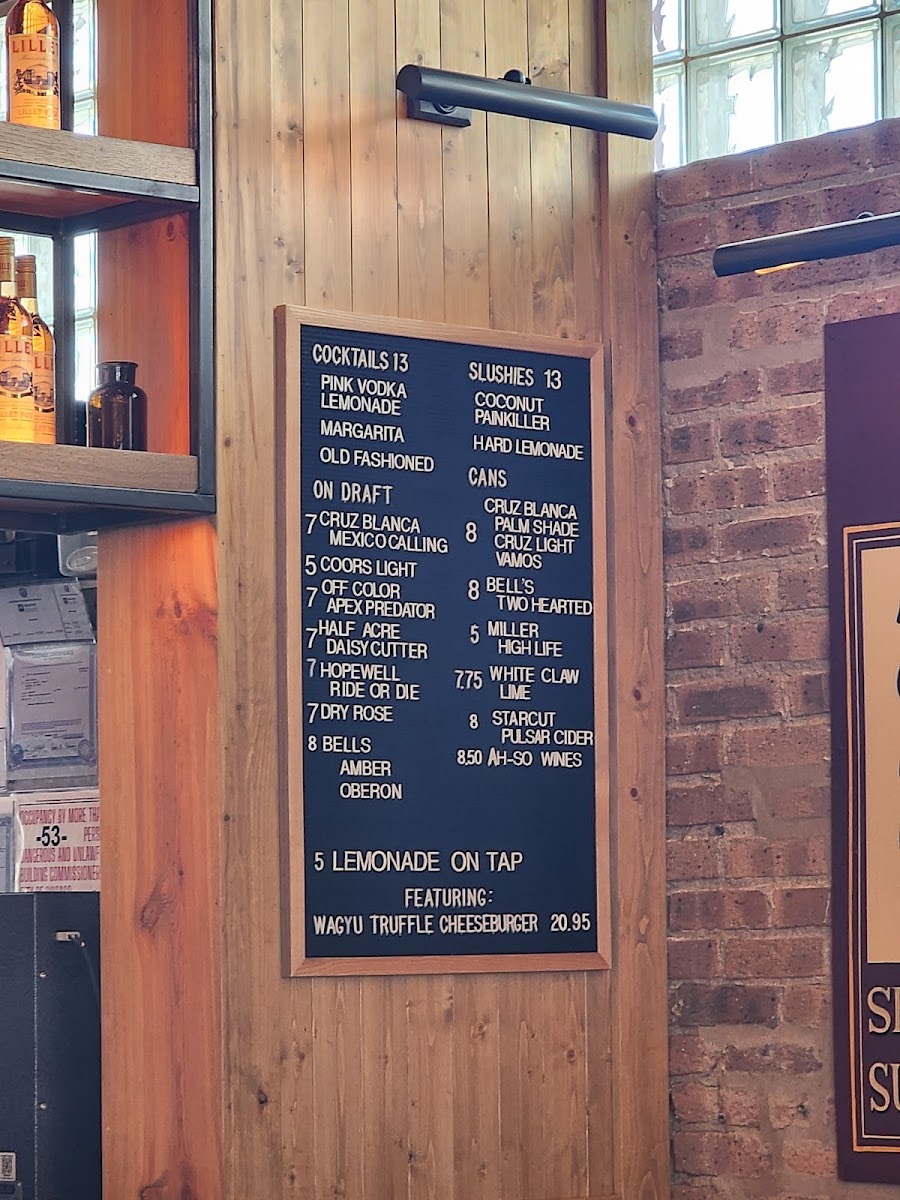 LILLE
LILLET
LILLE
COCKTAILS 13
PINK VODKA
LEMONADE
MARGARITA
OLD FASHIONED
ON DRAFT
7 CRUZ BLANCA
MEXICO CALLING
5 COORS LIGHT
7 OFF COLOR
APEX PREDATOR
7 HALF ACRE
DAISY CUTTER
7 HOPEWELL
RIDE OR DIE
7 DRY ROSE
8 BELLS
AMBER
OBERON
SLUSHIES 13
COCONUT
PAINKILLER
HARD LEMONADE
CANS
8 CRUZ BLANCA
PALM SHADE
CRUZ LIGHT
VAMOS
8 BELL'S
TWO HEARTED
5 MILLER
HIGH LIFE
7.75 WHITE CLAW
LIME
8 STARCUT
PULSAR CIDER
8.50 AH-SO WINES
5 LEMONADE ON TAP
FEATURING:
WAGYU TRUFFLE CHEESEBURGER 20.95
OCCUPANCY BY MORE THA
-53- PERS
DANGEROUS AND UNLAWF
BUILDING COMMISSIONER
SU